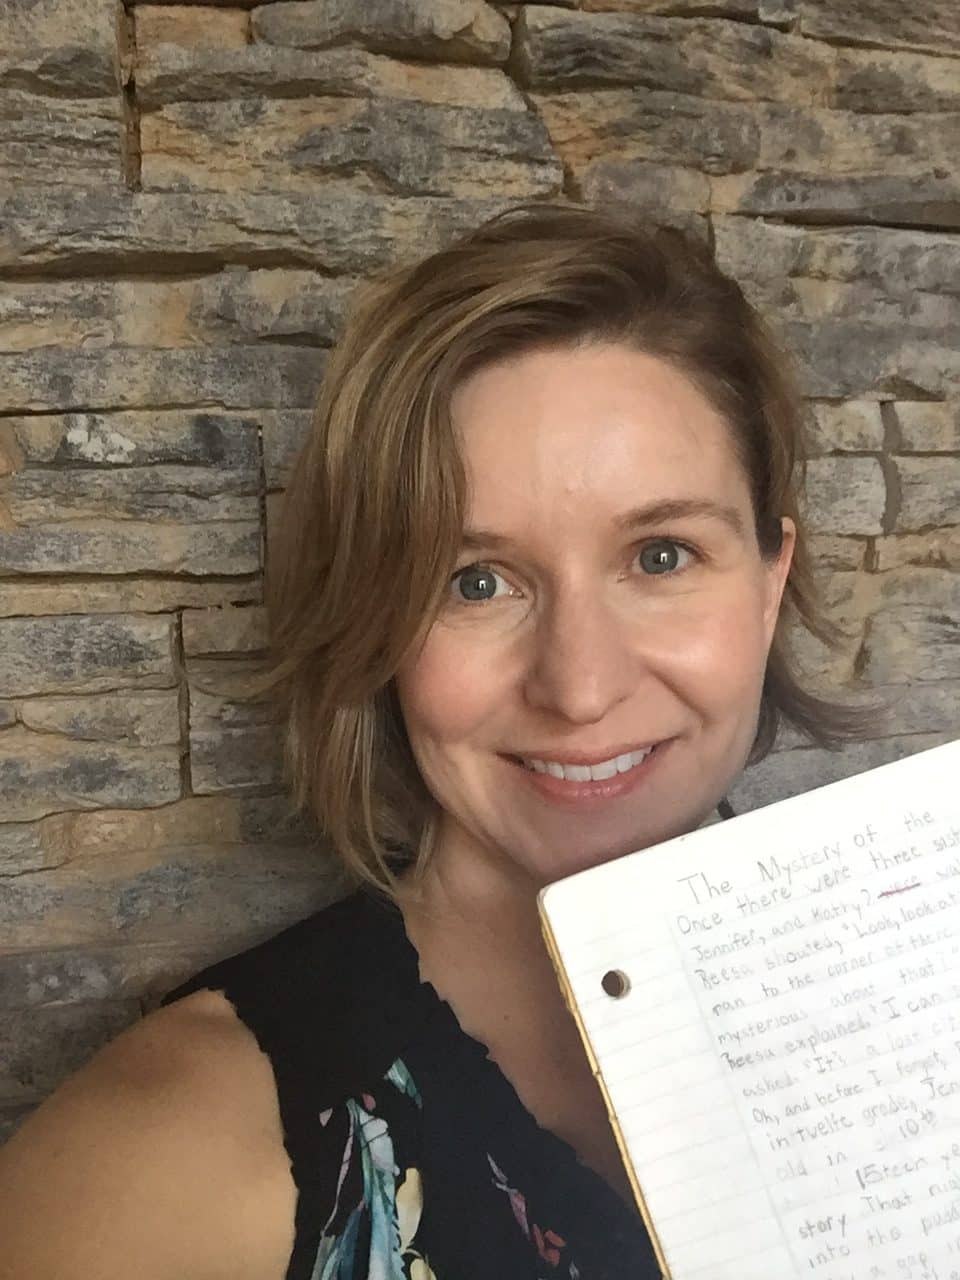 The Mystery of the
Once there were three sist
Jennifer, and Kathy) were wal
Reesa shouted, "Look, look at
ran to the corner of there
mysterious about that I"
Reesa explained. "I can s
asked. "It's a lost cit
Oh, and before I forget,
in twelfe grade, Jen
old in 10th
15teen ye
story That nig
into the pudd
a gap in